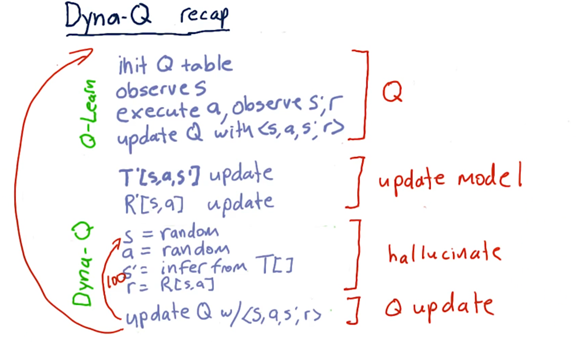 Dyna-Q recap
Q-Learn
init Q table
observe s
execute a, observe s', r
update Q with <s, a, s', r>
Q
T'[s,a,s'] update
R'[s,a] update
update model
Dyna-Q
s = random
a = random
s' = infer from T[]
r = R[s,a]
100
hallucinate
update Q w/ <s, a, s', r>
Q update